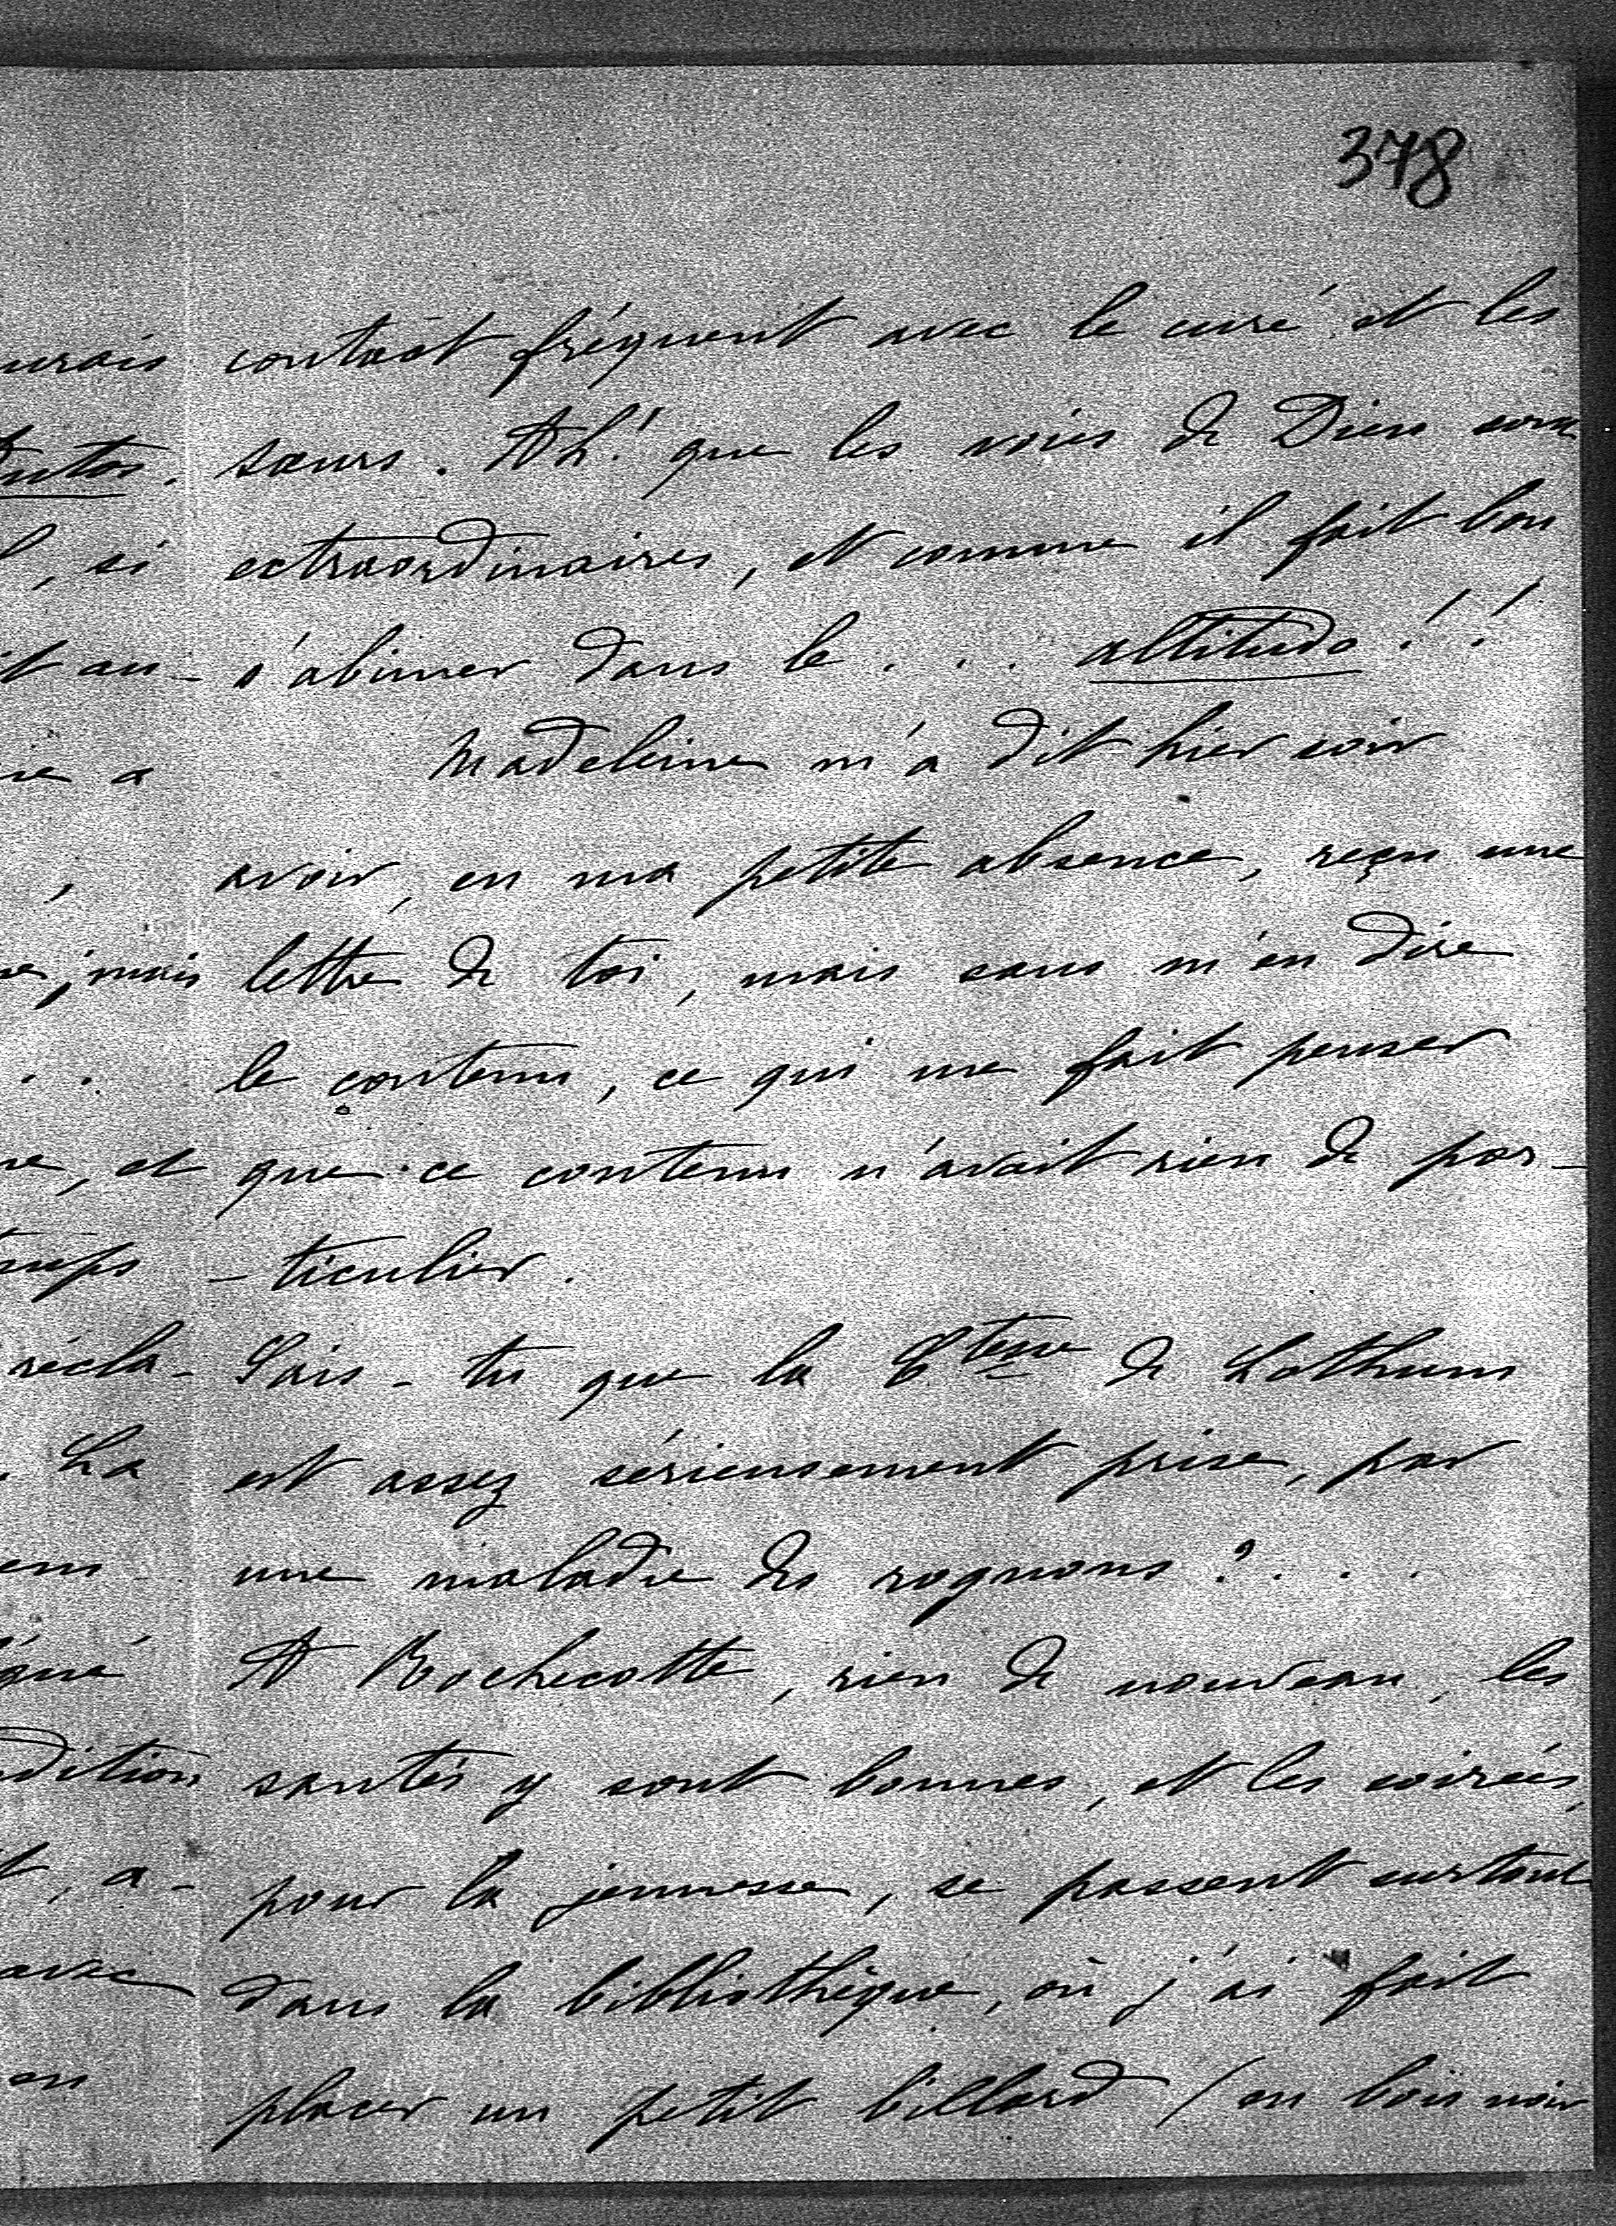 378
contact fréquent avec le curé et les
sœurs. Ah! que les voies de Dieu sont
extraordinaires, et comme il fait bon
s'abimer dans le . . . altitudo !!
Madeleine m'a dit hier soir
avoir, en ma petite absence, reçu une
lettre de toi, mais sans m'en dire
le contenu, ce qui me fait penser
que ce contenu n'avait rien de par-
-ticulier.
Sais-tu que la Ctesse de Lothum
est assez sérieusement prise, par
une maladie des rognons ? . . .
A Rochecotte, rien de nouveau, les
santés y sont bonnes, et les soirées,
pour la jeunesse, se passent surtout
dans la bibliothèque, où j'ai fait
placer un petit billard (en bois noir
urais
, si
t au-
, mais
, et
récla-
. La
dition
, a-
avec
en